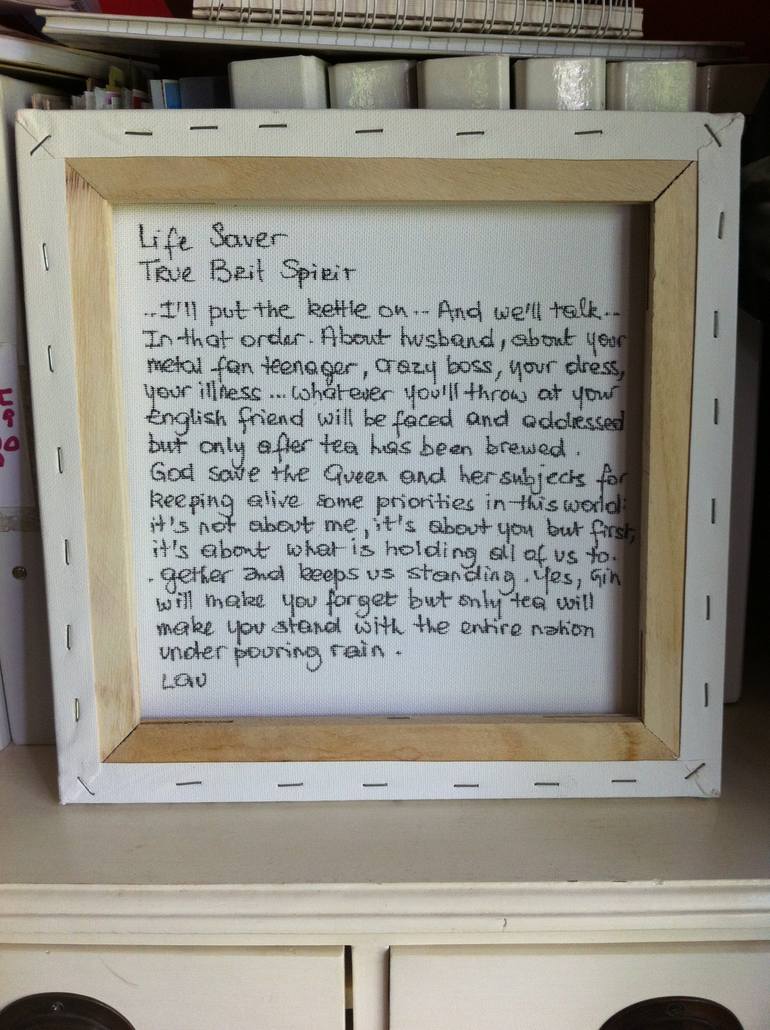 Life Saver
True Brit Spirit
..I'll put the kettle on... And we'll talk...
In that order. About husband, about your
metal fan teenager, crazy boss, your dress,
your illness ... whatever you'll throw at your
English friend will be faced and addressed
but only after tea has been brewed.
God save the Queen and her subjects for
keeping alive some priorities in this world:
it's not about me, it's about you but first,
it's about what is holding all of us to.
.gether and keeps us standing. Yes, Gin
will make you forget but only tea will
make you stand with the entire nation
under pouring rain.
Lau